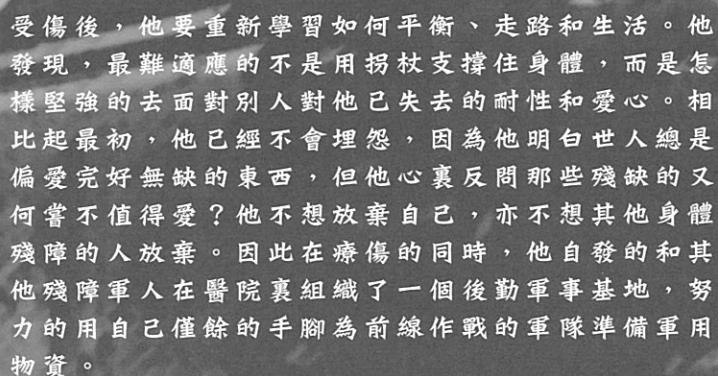 受傷後，他要重新學習如何平衡、走路和生活。他
發現，最難適應的不是用拐杖支撐住身體，而是怎
樣堅強的去面對別人對他已失去的耐性和愛心。相
比起最初，他已經不會埋怨，因為他明白世人總是
偏愛完好無缺的東西，但他心裏反問那些殘缺的又
何嘗不值得愛？他不想放棄自己，亦不想其他身體
殘障的人放棄。因此在療傷的同時，他自發的和其
他殘障軍人在醫院裏組織了一個後勤軍事基地，努
力的用自己僅餘的手腳為前線作戰的軍隊準備軍用
物資。